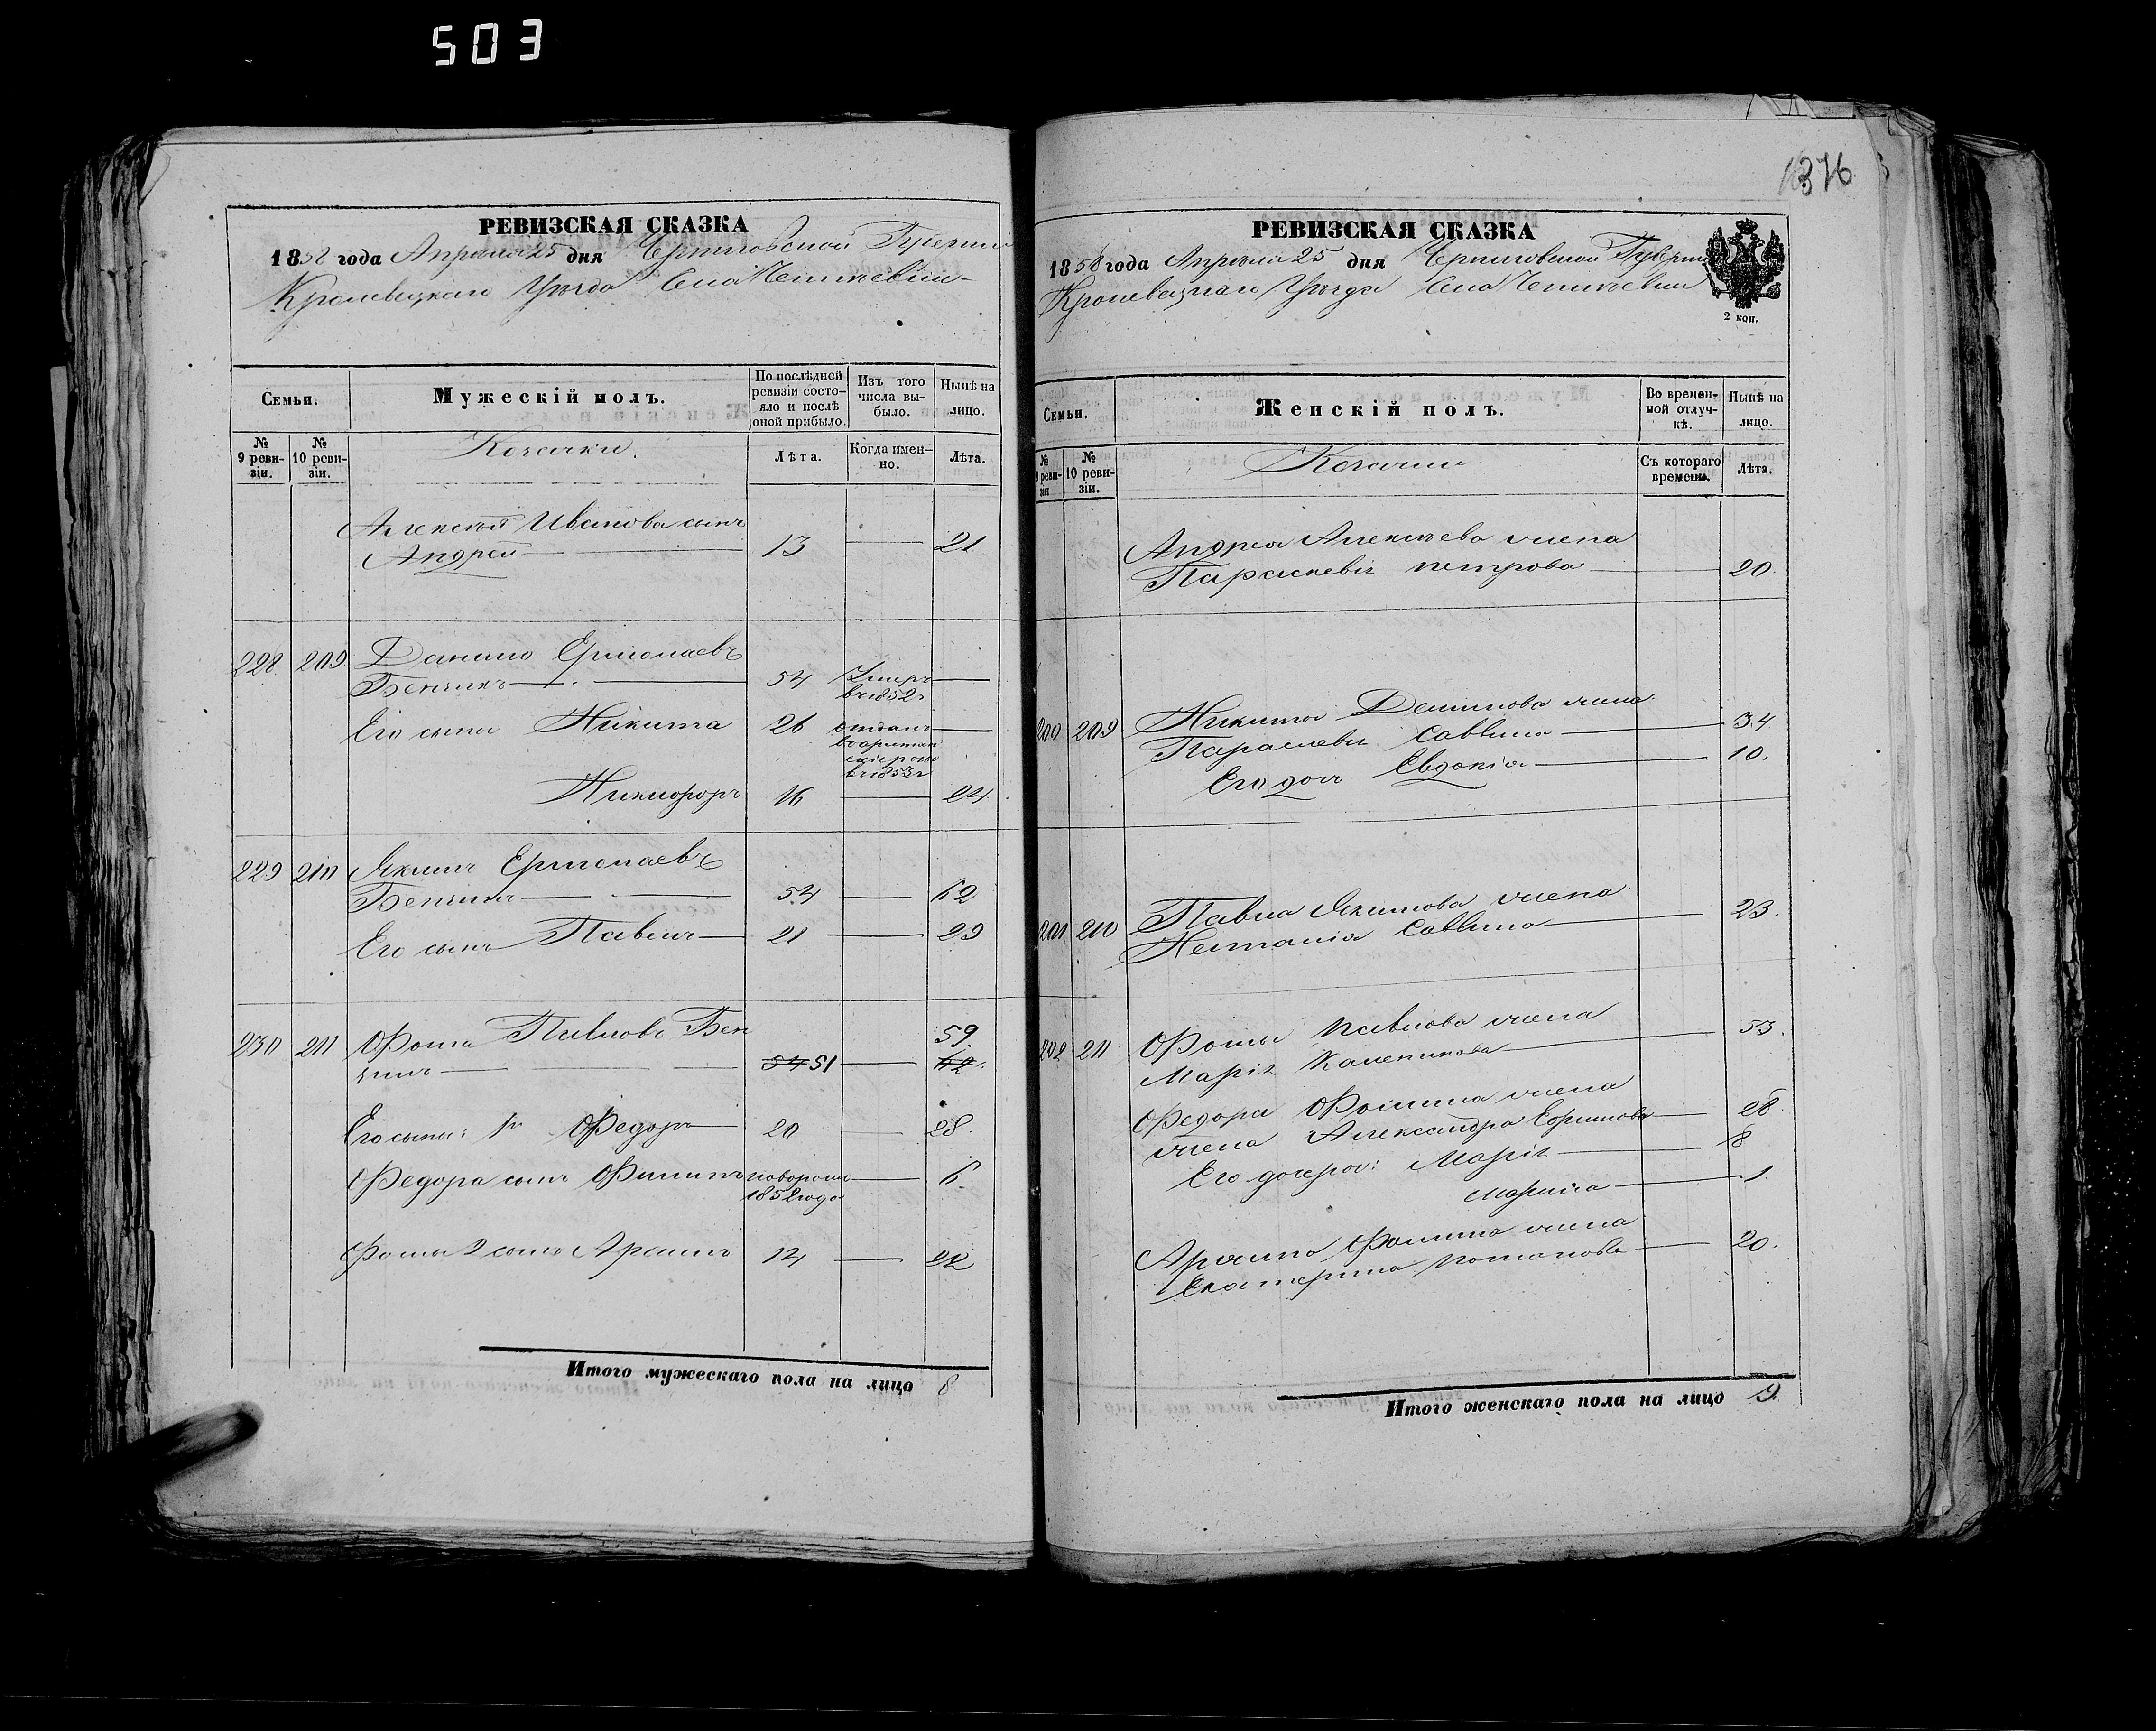 503
РЕВИЗСКАЯ СКАЗКА
1858 года Апреля 25 дня Черниговской Губерніи
Кролевецкаго Уѣзда Села
Семьи.
Мужескій полъ.
По послѣдней ревизіи состояло и послѣ оной прибыло.
Изъ того числа выбыло.
Нынѣ на лицо.
№ 9 ревизіи.
№ 10 ревизіи.
Козачки.
Лѣта.
Когда именно.
Лѣта.
Алексѣя Иванова сынъ
Андрей 13 21
228 209 Данило Ермолаевъ
54 Умеръ
в 1852
Его сыны Никита 26 отданъ
в 1853 г
Никифоръ 16 24
229 210 Якимъ Ермолаевъ
54 62
Его сынъ Павелъ 21 29
230 211 Фома Павловъ Бен
59
54 51 62
Его сыны: 1й Федоръ 20 28
Федора сынъ Филипъ новорож 6
1852 года
Фомы 2 сынъ 14 22
Итого мужескаго пола на лицо 8
376
РЕВИЗСКАЯ СКАЗКА
1858 года Апреля 25 дня Черниговской Губерніи
Кролевецкаго Уѣзда Села
2 коп.
Семьи.
Женскій полъ.
Во временной отлучкѣ.
Нынѣ на лицо.
№ 9 ревизіи
№ 10 ревизіи.
Козачки
Съ котораго времени.
Лѣта.
Андрея Алексѣева жена
Параскевія Петрова 20
209 Никиты Данилова жена
Параскевія Саввина 34
Его дочь Евдокія 10.
210 Павла Якимова жена
Саввина 23.
211 Фомы Павлова жена 53.
Марія
Федора Фомина жена
жена Александра Ефимова 28
Его дочери: Марія 8
Марина 1
Фомина жена
Екатерина Потапова 20.
Итого женскаго пола на лицо 9